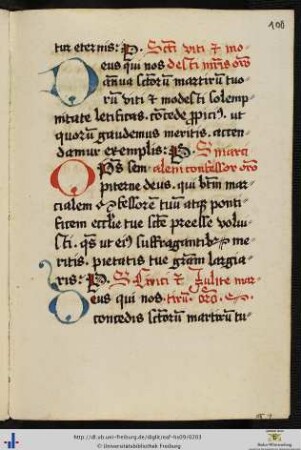 108
tur eternis: P. Scti viti et mo-
Deus qui nos desti mris oro
annua sctorum martirum tuo-
rum viti et modesti solemp-
nitate letificas. concede propici9. ut
quorum gaudemus meritis. accen-
damur exemplis: P. S marci
Omps sem alem confessor oro
piterne deus. qui btm mar-
cialem confessorem tuum atque ponti-
ficem ecclesie tue scte preesse volui-
sti. qs ut ei9 suffragantibus me-
ritis. pietatis tue gram largia-
ris: P. S Cirici et Julite mar-
Deus qui nos tirum. oro.
concedis sctorum martirum tu-
http://dl.ub.uni-freiburg.de/diglit/nsf-hs09/0203
© Universitätsbibliothek Freiburg